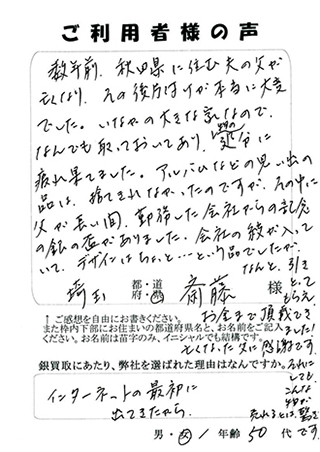 ご利用者様の声
数年前、秋田県に住む夫の父が
亡くなり、その後片付けが本当に大変
でした。いなかの大きな家なので、
なんでも取っておいてあり、処分に
疲れ果てました。アルバムなどの思い出の
品は、捨てきれなかったのですが、その中に
父が長い間、勤務した会社からの記念
の銀の盃がありました。会社の紋が入って
いて、デザインはちょっと…という品でしたが、
なんと、引き
とって
もらえ、
お金まで頂戴でき
ました!
亡くなった父に感謝です。
それに
しても、
こんな
物が
売れるとは、驚き
です。
埼玉 都・道 府・県 斎藤 様
↑ご感想を自由にお書きください。
また枠内下部にお住まいの都道府県名と、お名前をご記入
ください。お名前は苗字のみ、イニシャルでも結構です。
銀買取にあたり、弊社を選ばれた理由はなんですか。
インターネットの最初に
出てきたから。
男・女 / 年齢 50 代